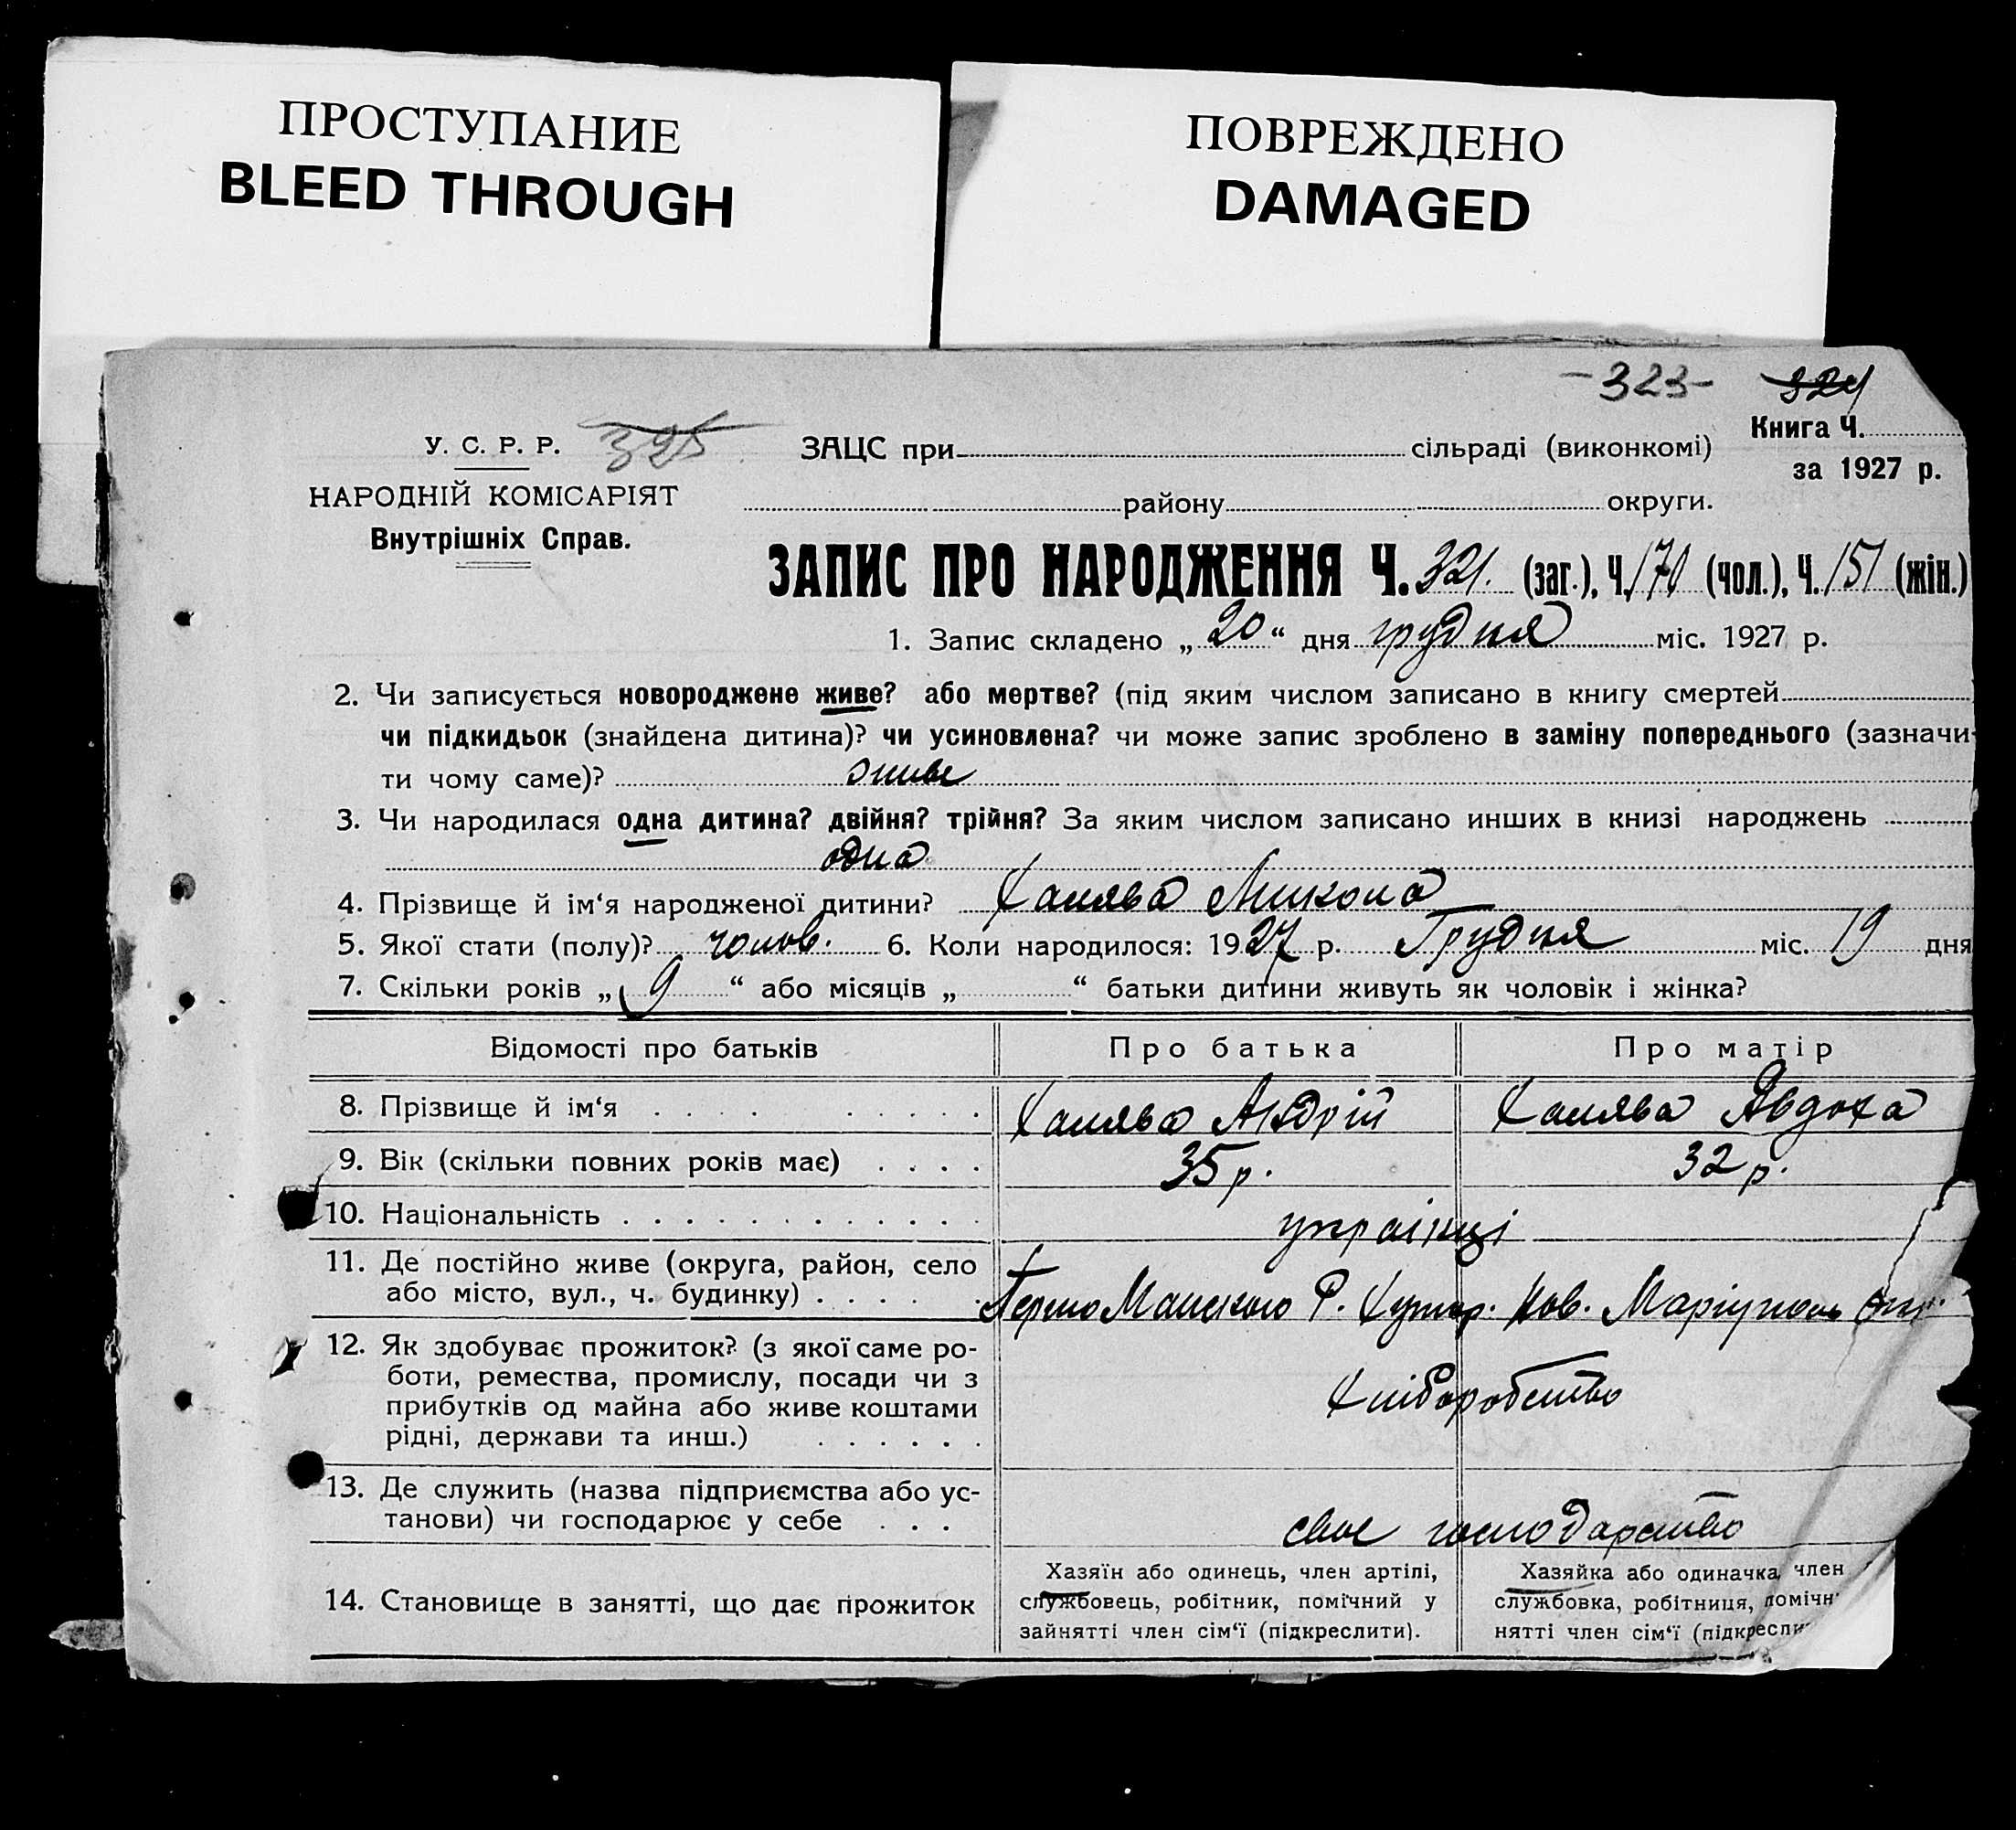 ПРОСТУПАНИЕ
BLEED THROUGH
ПОВРЕЖДЕНО
DAMAGED
-323- 324
Книга Ч.
за 1927 р.
У. С. Р. Р. 325
НАРОДНІЙ КОМІСАРІЯТ
Внутрішніх Справ.
ЗАЦС при сільраді (виконкомі)
району округи.
ЗАПИС ПРО НАРОДЖЕННЯ Ч. 321. (заг.), Ч. 170 (чол.), Ч. 151 (жін.)
1. Запис складено „ 20 “ дня грудня міс. 1927 р.
2. Чи записується новороджене живе? або мертве? (під яким числом записано в книгу смертей
чи підкидьок (знайдена дитина)? чи усиновлена? чи може запис зроблено в заміну попереднього (зазначи-
ти чому саме)? живе
3. Чи народилася одна дитина? двійня? трійня? За яким числом записано инших в книзі народжень
одна
4. Прізвище й ім‘я народженої дитини? Халява Микола
5. Якої стати (полу)? чолов. 6. Коли народилося: 1927 р. Грудня міс. 19 дня
7. Скільки років „ 9 “ або місяців „ “ батьки дитини живуть як чоловік і жінка?
Відомості про батьків Про батька Про матір
8. Прізвище й ім‘я Халява Андрій Халява Явдоха
9. Вік (скільки повних років має) 35 р. 32 р.
10. Національність українці
11. Де постійно живе (округа, район, село
або місто, вул., ч. будинку) Першо Майського Р. Хутор. Нов. Маріуполь Окр.
12. Як здобуває прожиток? (з якої саме ро-
боти, ремества, промислу, посади чи з
прибутків од майна або живе коштами
рідні, держави та инш.) Хліборобство
13. Де служить (назва підприємства або ус-
танови) чи господарює у себе своє господарство
14. Становище в занятті, що дає прожиток
Хазяїн або одинець, член артілі,
службовець, робітник, помічний у
зайнятті член сім‘ї (підкреслити).
Хазяйка або одиначка, член
службовка, робітниця, помічн
нятті член сім‘ї (підкресли